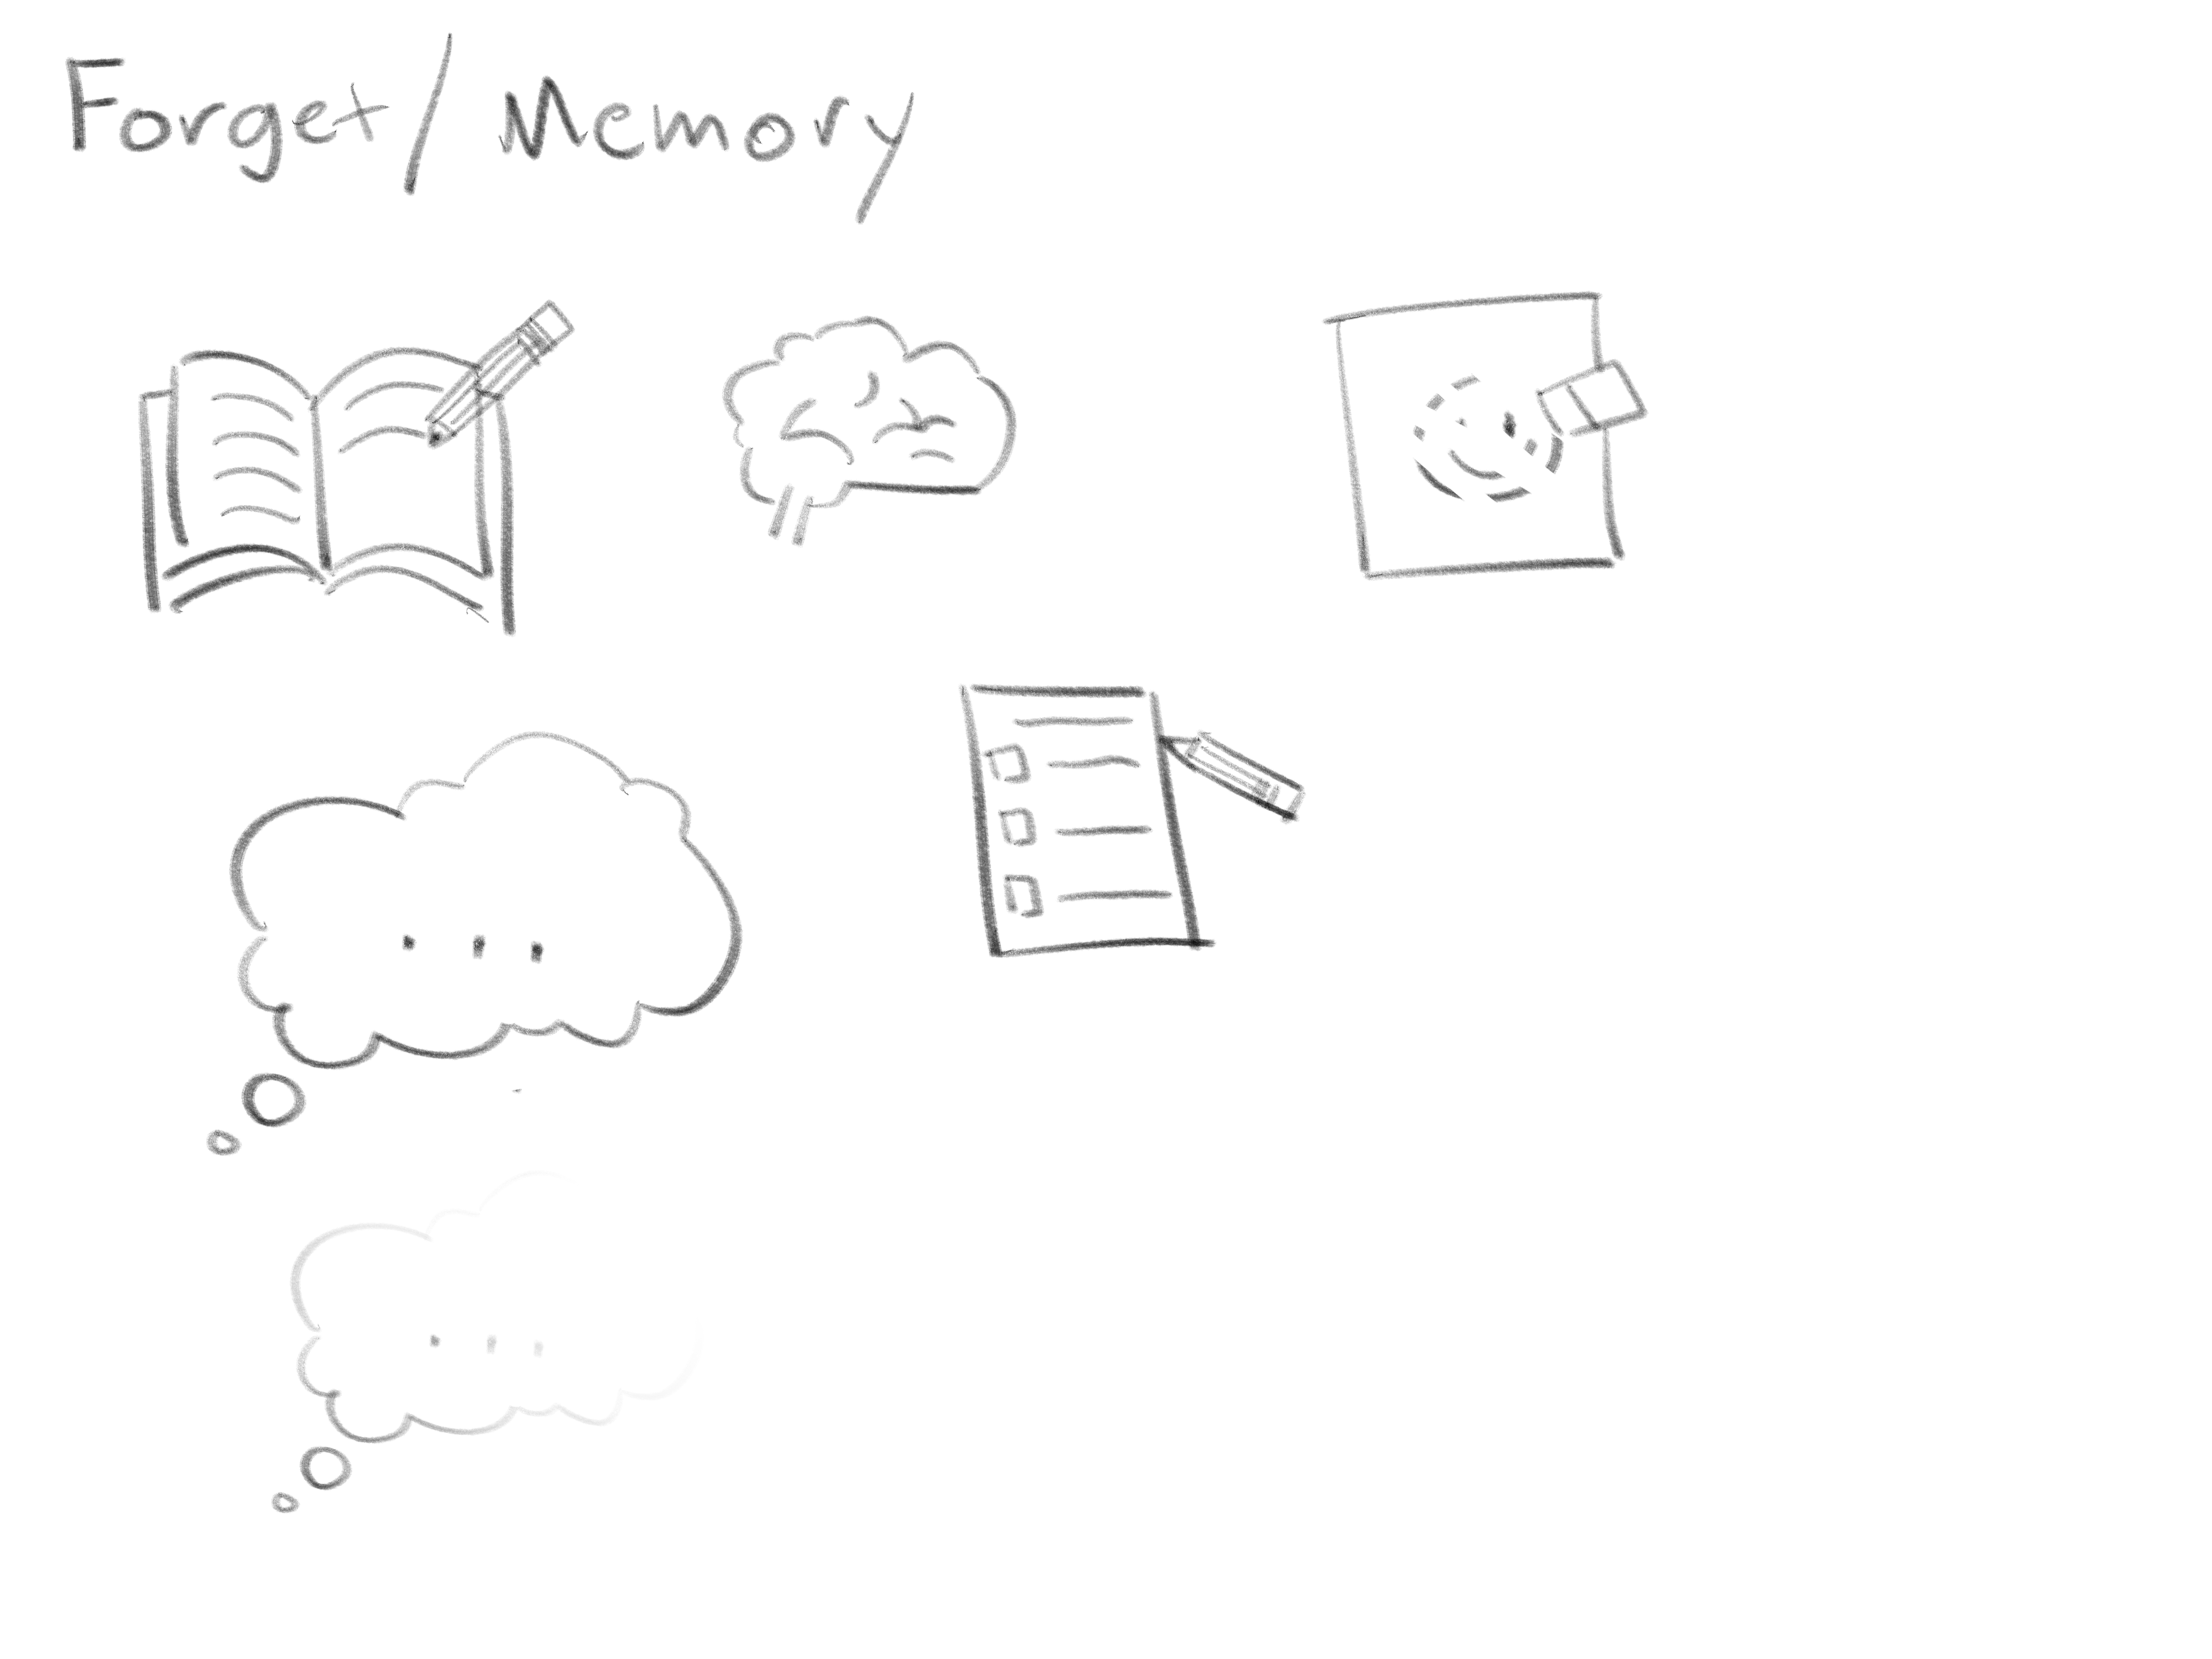 Forget/ Memory